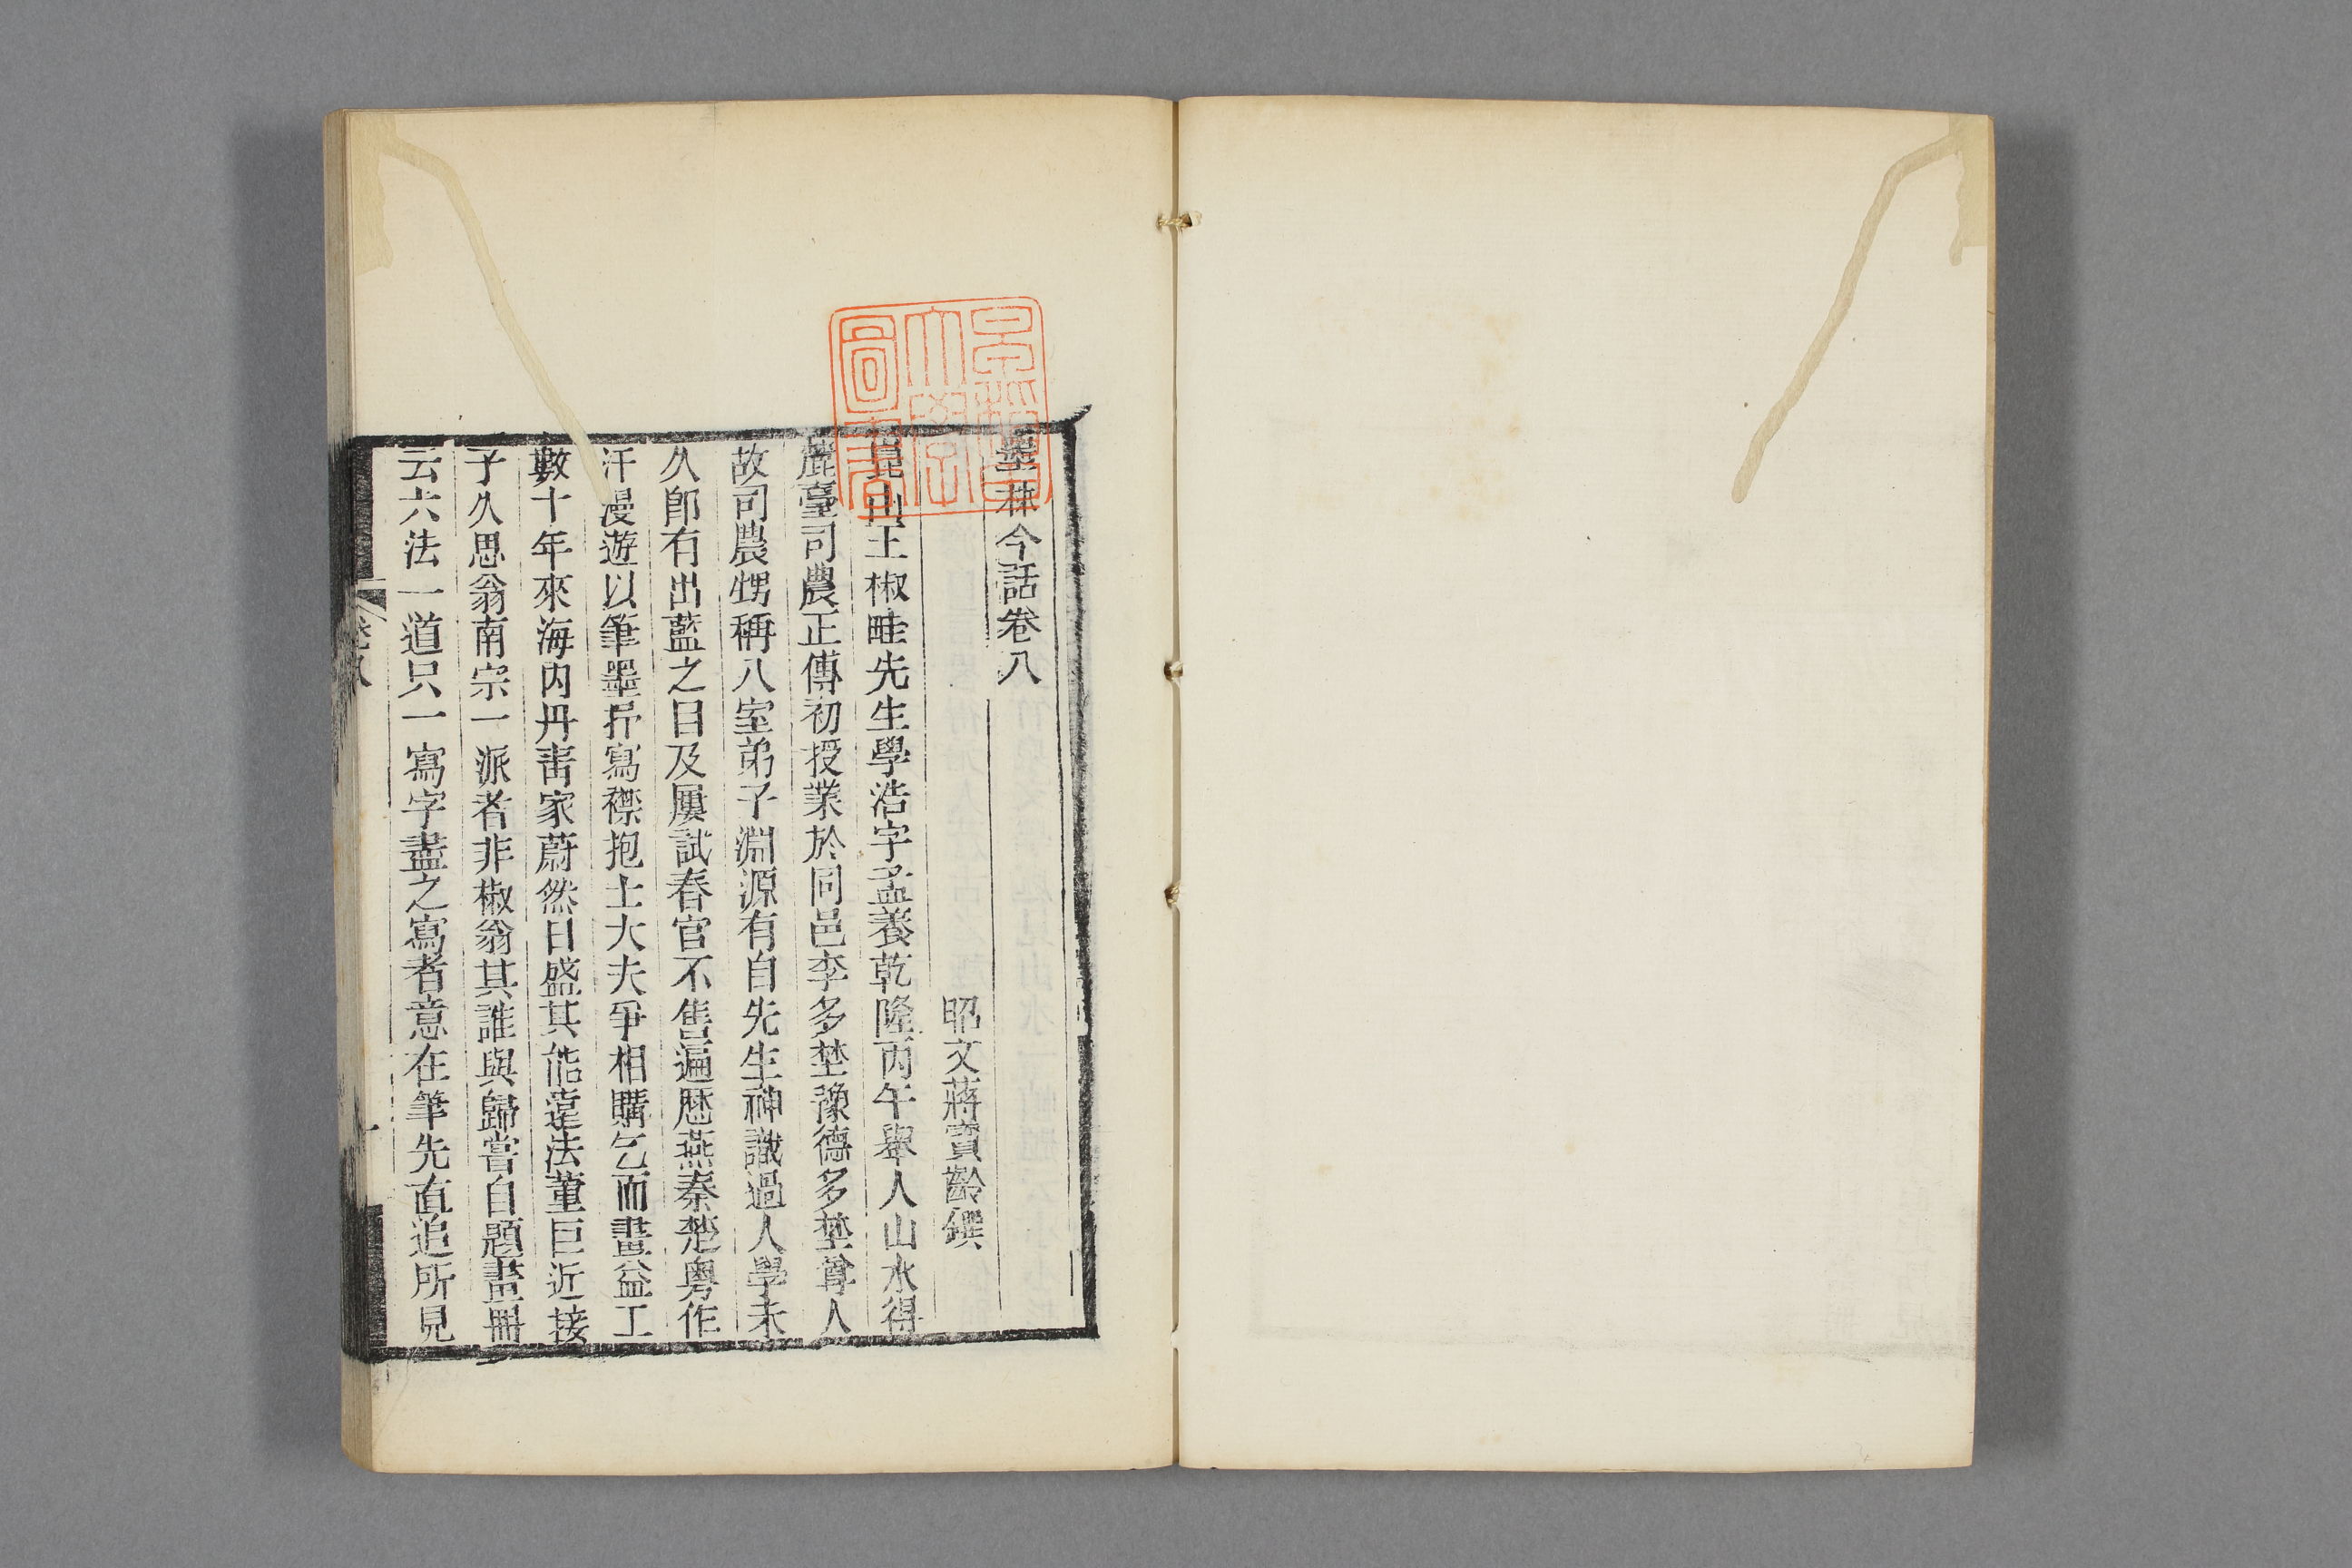 墨林今話卷八
昭文蔣寶齡撰
崑山王椒畦先生學浩字孟養乾隆丙午舉人山水得
麓臺司農正傳初授業於同邑李多埜豫德多埜尊人
故司農甥稱入室弟子淵源有自先生神識過人學未
久卽有出藍之目及屢試春官不售遍歷燕秦楚粵作
汗漫遊以筆墨抒寫襟抱士大夫爭相購乞而畫益工
數十年來海內丹青家蔚然日盛其能遠法董巨近接
子久思翁南宗一派者非椒翁其誰與歸嘗自題畫冊
云六法一道只一寫字盡之寫者意在筆先直追所見
卷八
一